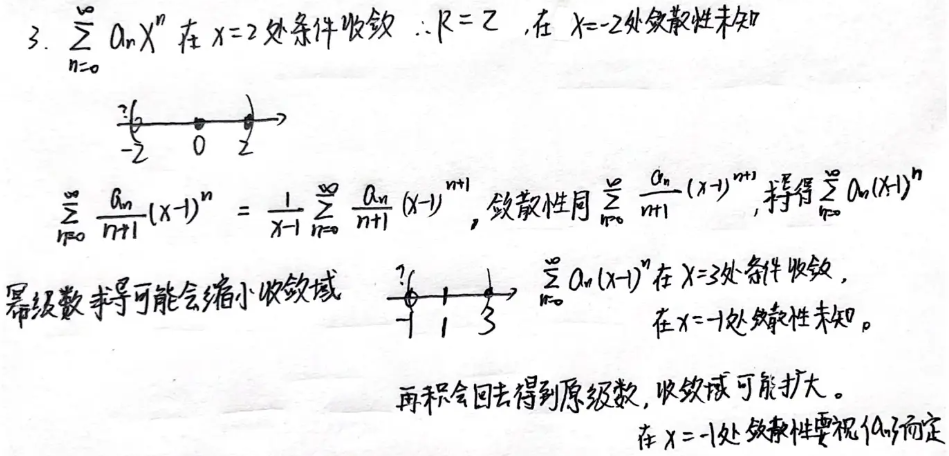 3. $\sum_{n=0}^{\infty} a_n x^n$ 在 x=2 处条件收敛 ∴R=2 ,在 x=-2处敛散性未知
? -2 0 2
$\sum_{n=0}^{\infty} \frac{a_n}{n+1}(x-1)^n = \frac{1}{x-1} \sum_{n=0}^{\infty} \frac{a_n}{n+1}(x-1)^{n+1}$, 敛散性同 $\sum_{n=0}^{\infty} \frac{a_n}{n+1}(x-1)^{n+1}$, 求导得 $\sum_{n=0}^{\infty} a_n(x-1)^n$
幂级数求导可能会缩小收敛域
? -1 1 3
$\sum_{n=0}^{\infty} a_n(x-1)^n$ 在 x=3处条件收敛,
在x=-1处敛散性未知。
再积会回去得到原级数, 收敛域可能扩大。
在 x=-1处敛散性要视{a_n}而定